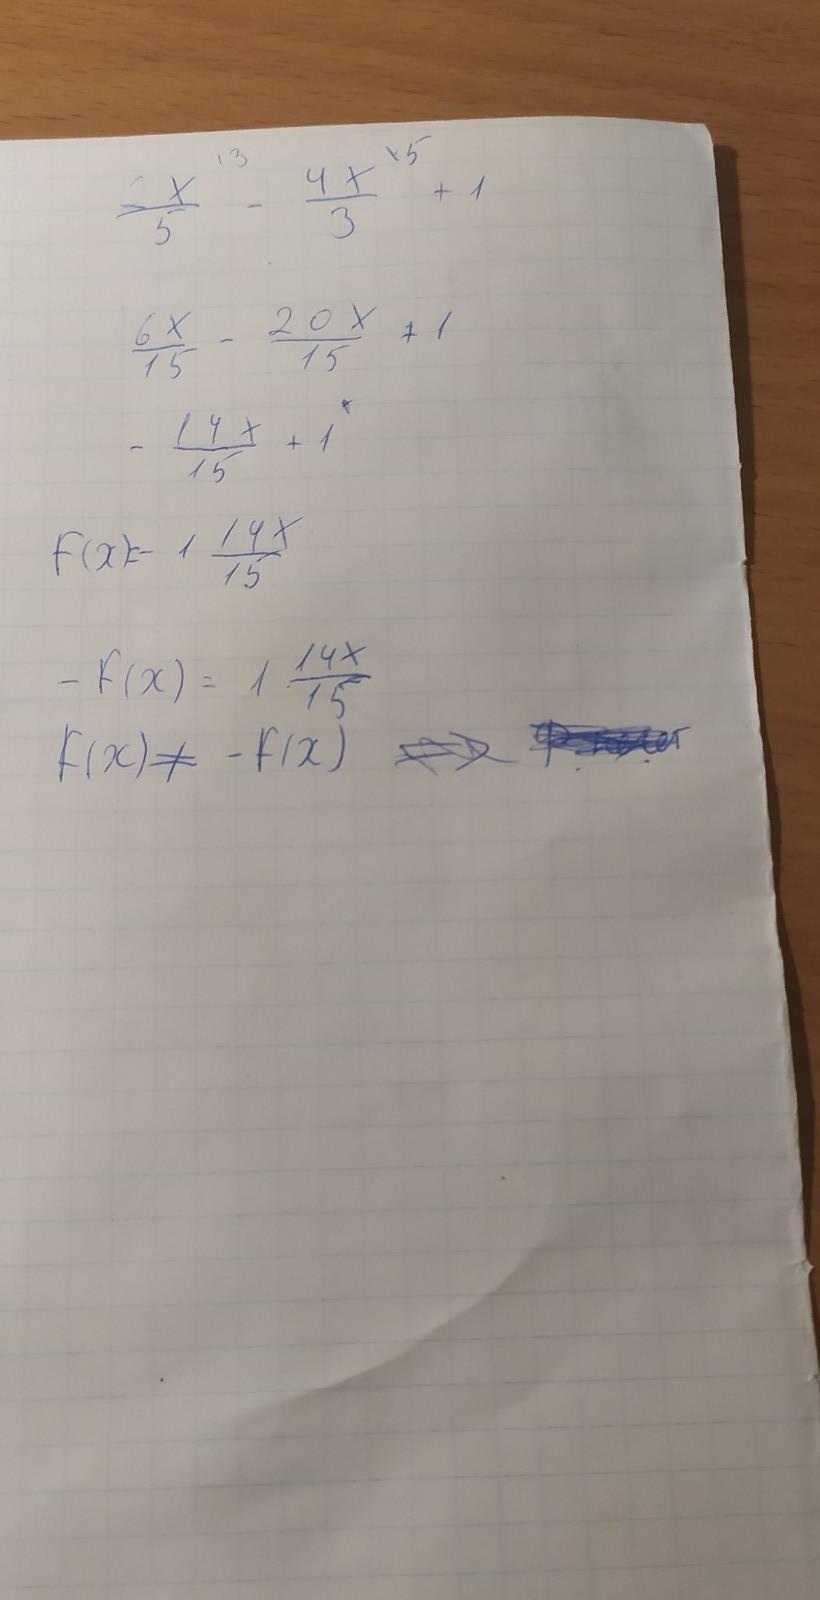 x/5 ×3 - 4x/3 ×5 + 1
6x/15 - 20x/15 + 1
- 14x/15 + 1
F(x)= 1 14x/15
- F(x) = 1 14x/15
F(x) ≠ -F(x) ⟺